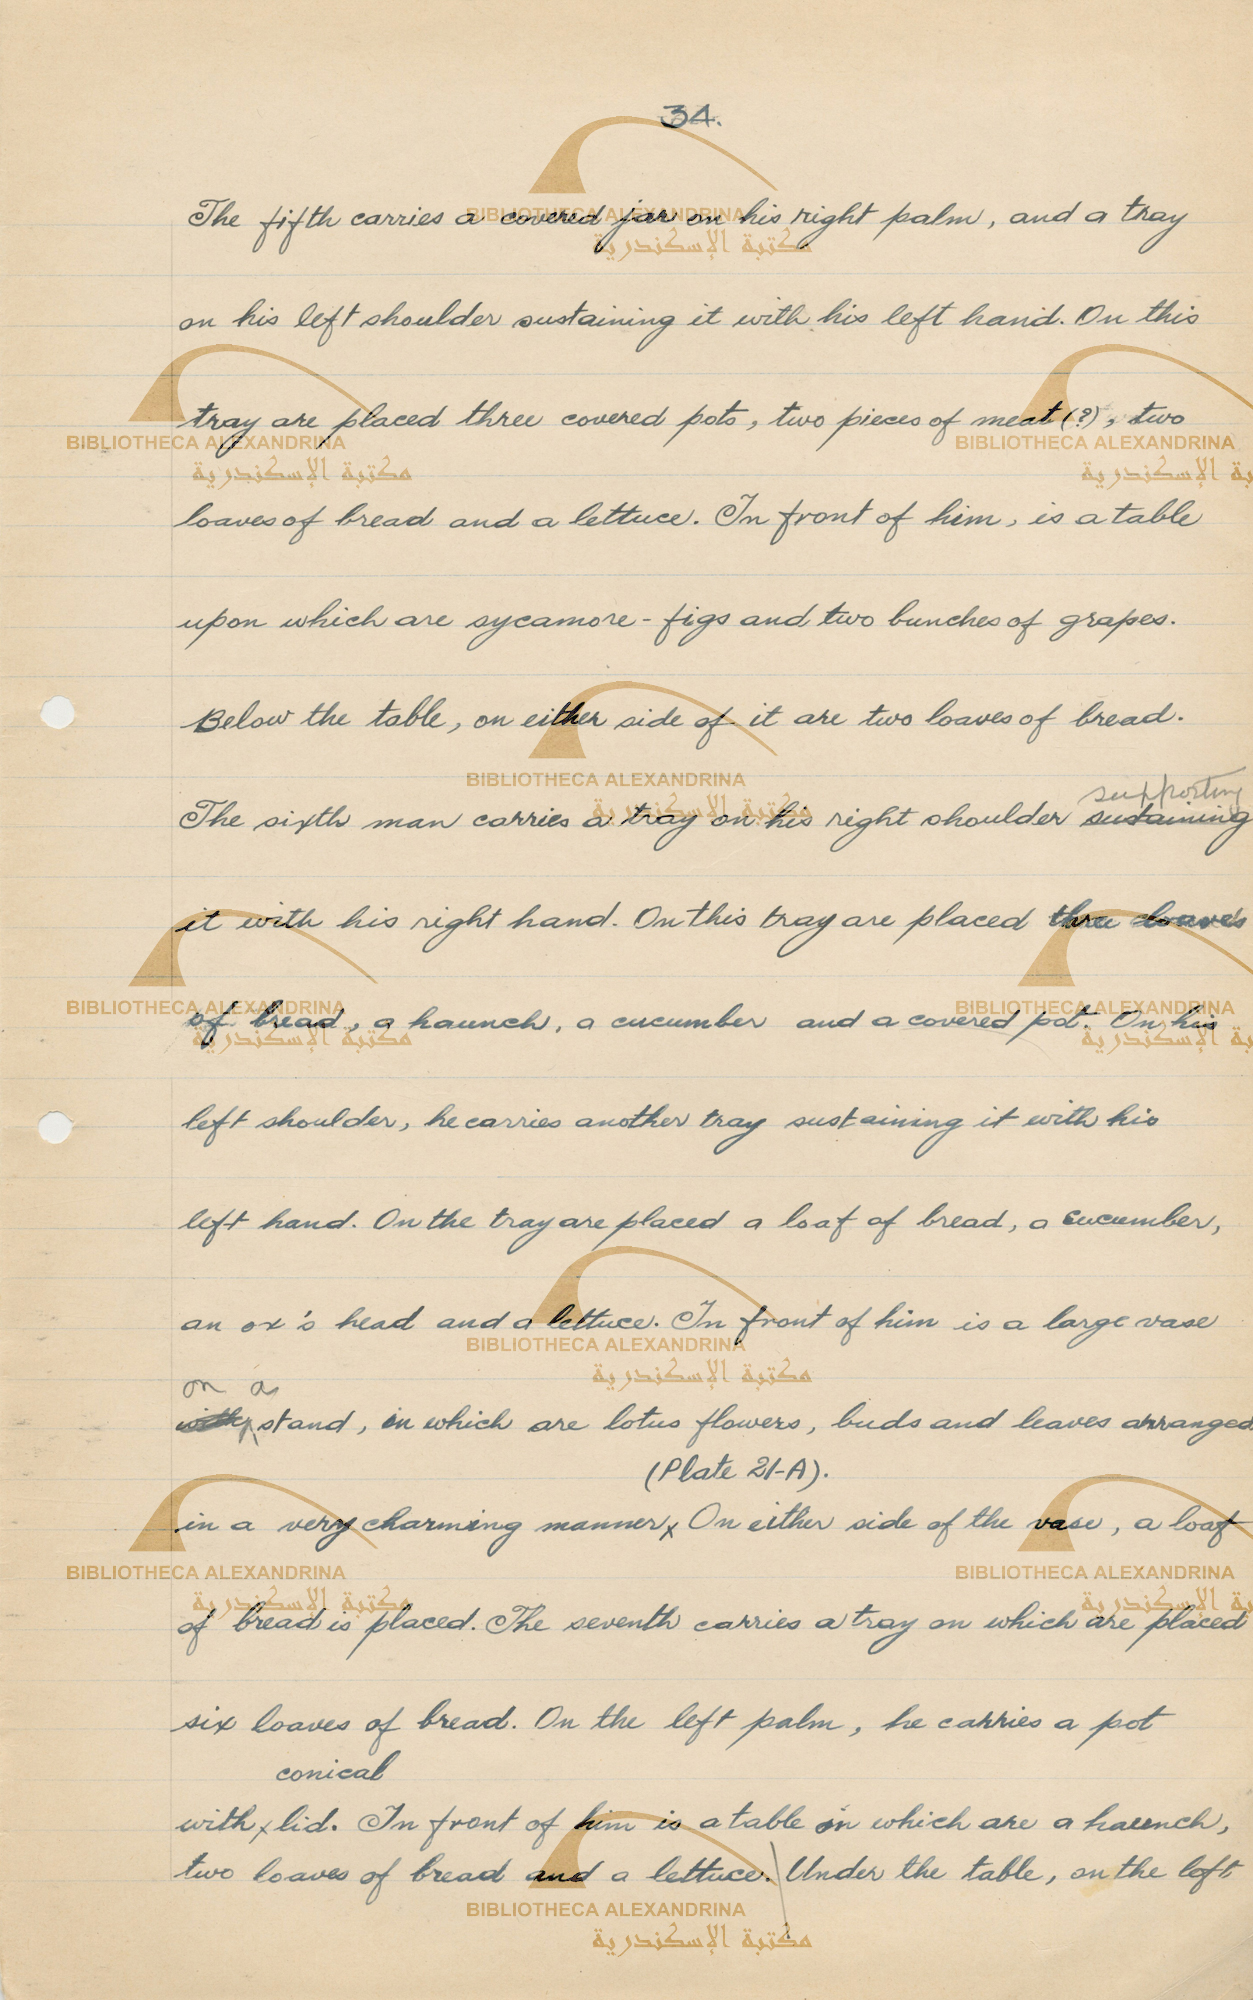 34.
The fifth carries a covered jar on his right palm, and a tray
on his left shoulder sustaining it with his left hand. On this
tray are placed three covered pots, two pieces of meat (?), two
loaves of bread and a lettuce. In front of him, is a table
upon which are sycamore-figs and two bunches of grapes.
Below the table, on either side of it are two loaves of bread.
supporting
The sixth man carries a tray on his right shoulder sustaining
it with his right hand. On this tray are placed three loaves
of bread, a haunch, a cucumber and a covered pot. On his
left shoulder, he carries another tray sustaining it with his
left hand. On the tray are placed a loaf of bread, a cucumber,
an ox's head and a lettuce. In front of him is a large vase
on a
with stand, in which are lotus flowers, buds and leaves arranged
(Plate 21-A).
in a very charming manner x On either side of the vase, a loaf
of bread is placed. The seventh carries a tray on which are placed
six loaves of bread. On the left palm, he carries a pot
conical
with x lid. In front of him is a table on which are a haunch,
two loaves of bread and a lettuce. Under the table, on the left
BIBLIOTHECA ALEXANDRINA
مكتبة الإسكندرية